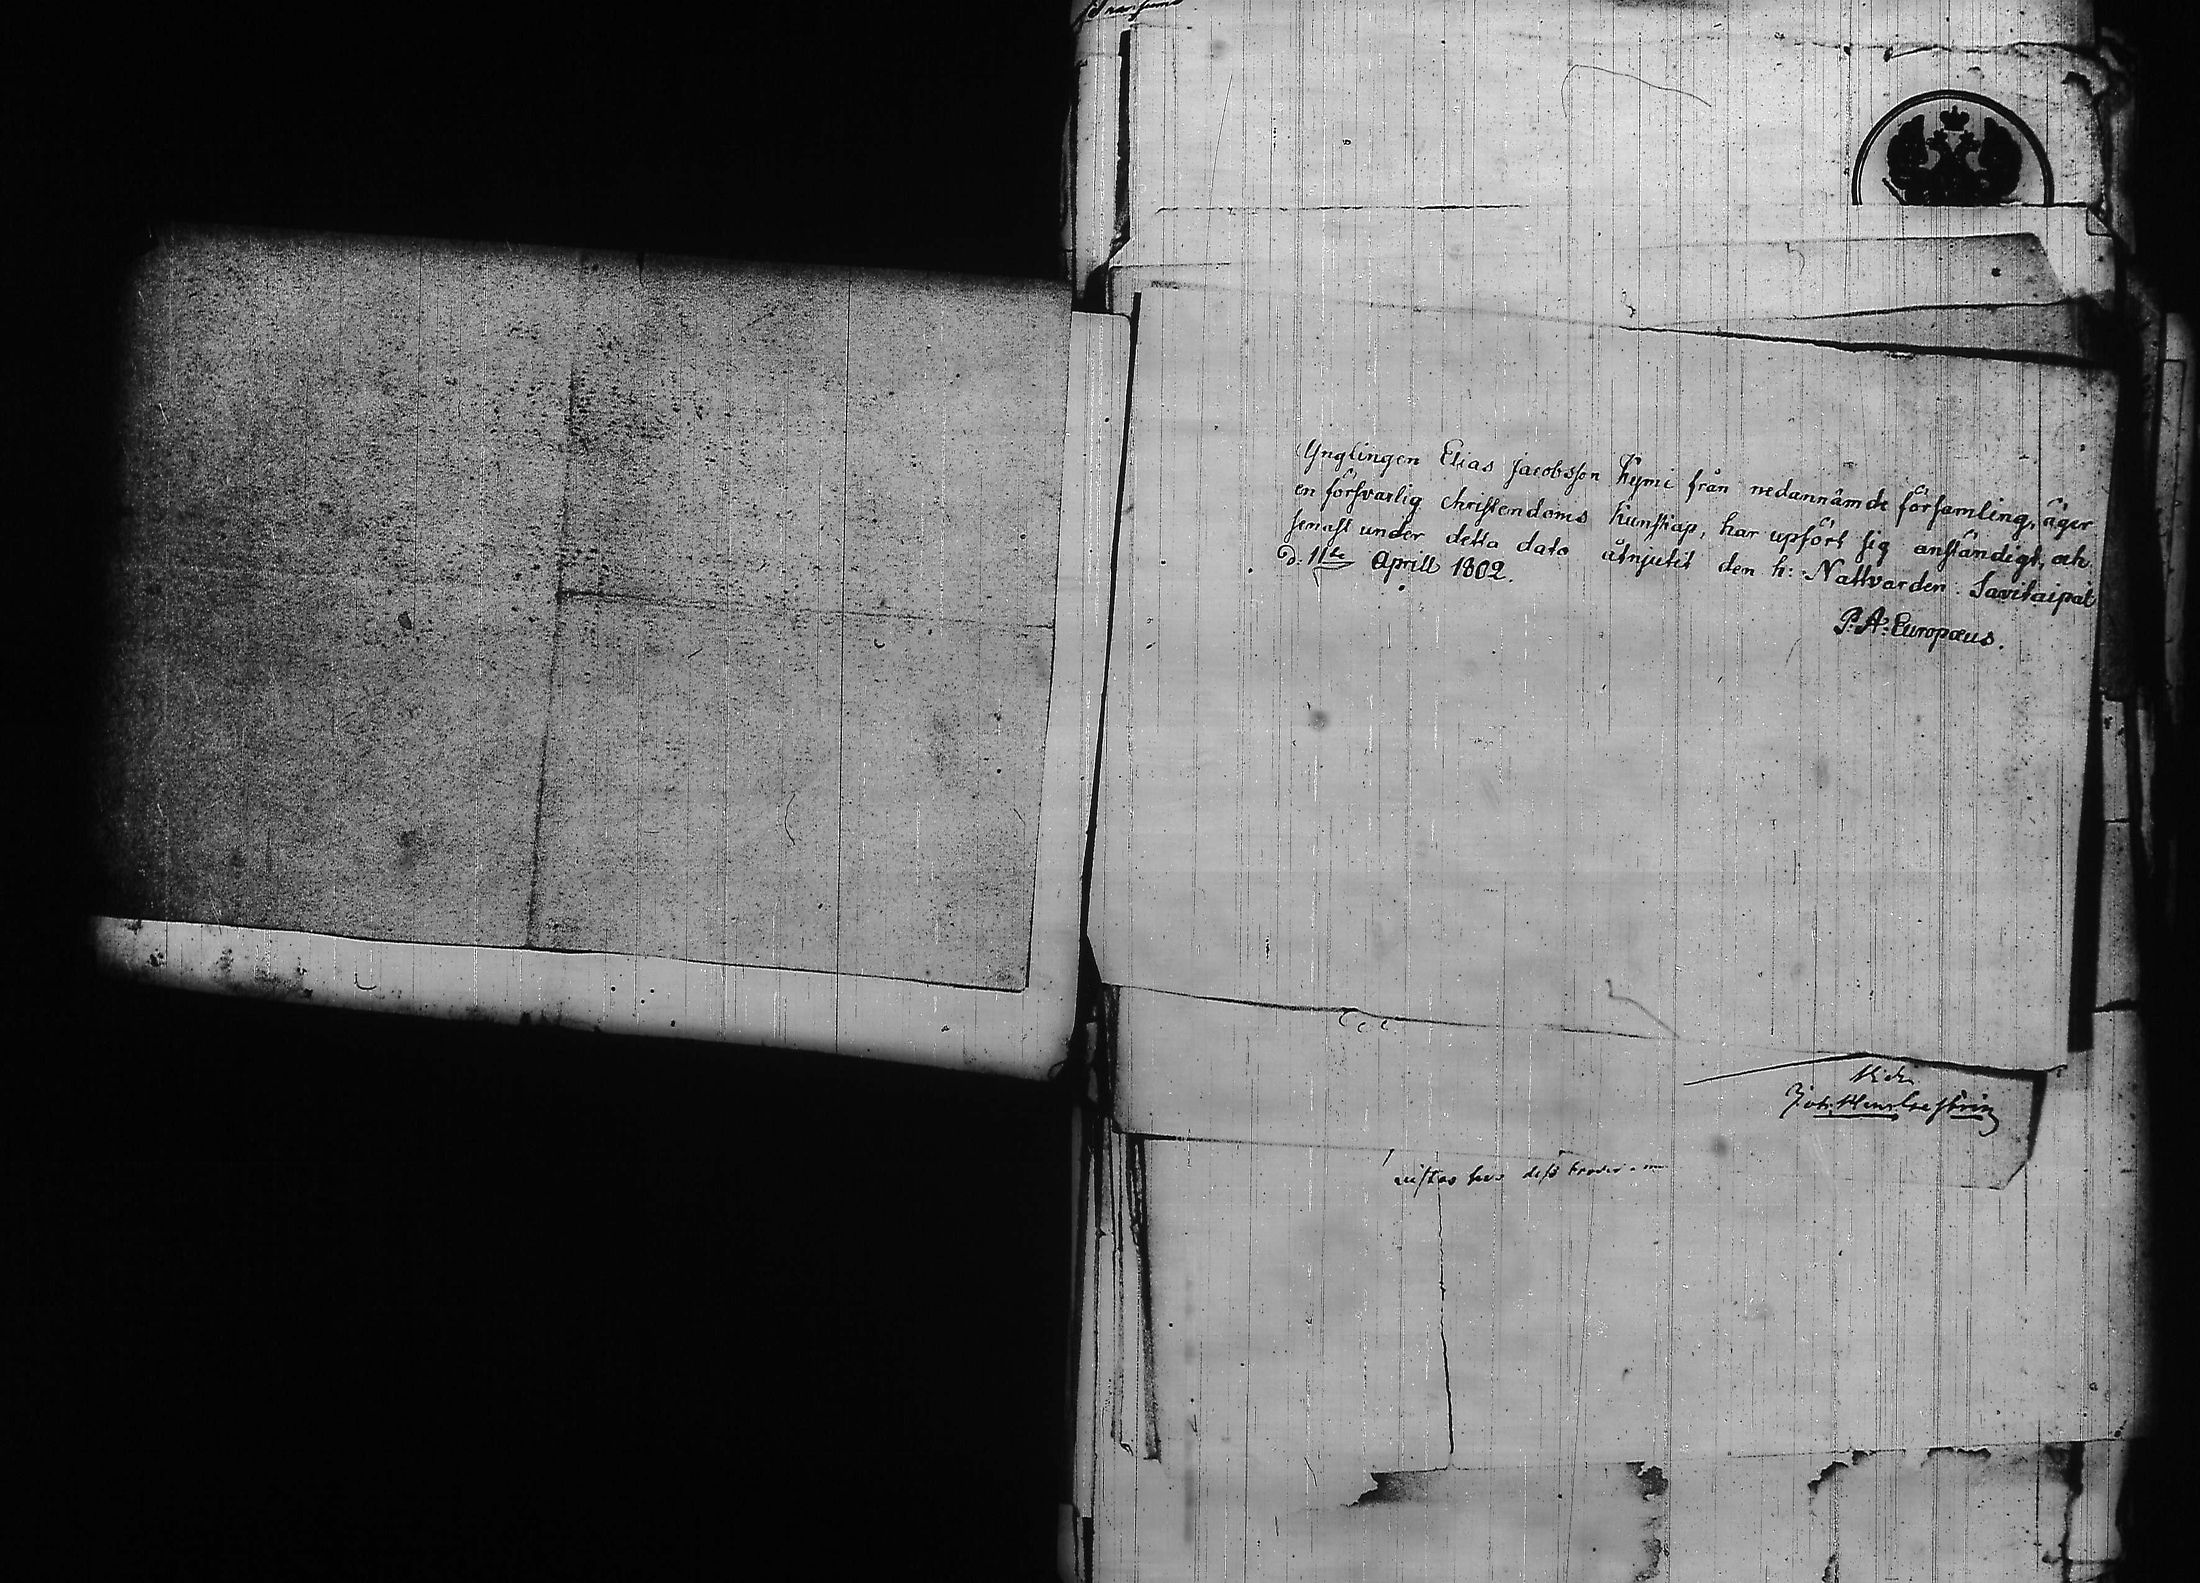 Ynglingen Elias Jacobsson Kymi från nedannämde församling, äger
en försvarlig christendoms kunskap, har upfört sig anständigt, och
senast under detta dato åtnjutit den h: Nattvarden. Savitaipal
d. 11te Aprill 1802.
P: A: Europæus.
vistas hos dess broder